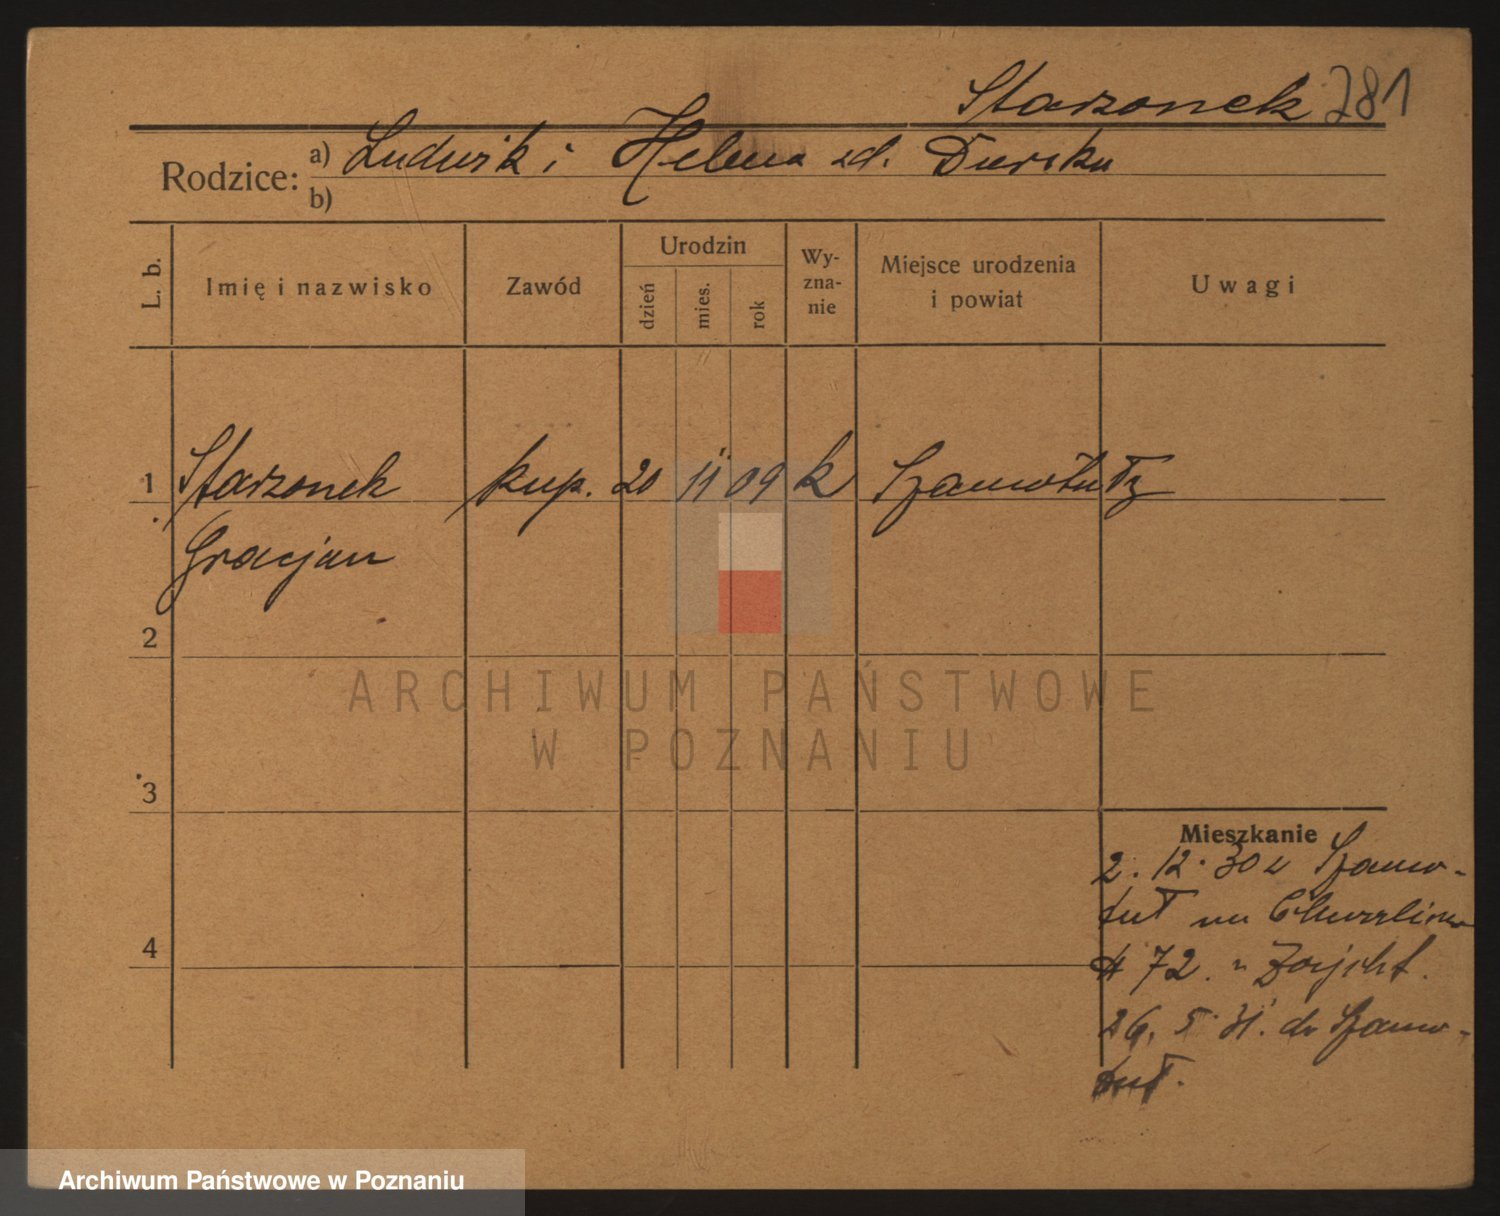 Starzonek 281
Rodzice: a) Ludwik i Helena zd. Durska
b)
L. b.
Imię i nazwisko
Zawód
Urodzin
dzień
mies.
rok
Wy-
zna-
nie
Miejsce urodzenia
i powiat
Uwagi
1 Starzonek kup. 20 11 09 k Szamotuły
Gracjan
2
3
4
Mieszkanie
2. 12. 30 z Szamo-
tuł na
# 72. u
26. 5. 31. do Szamo-
tuł.
ARCHIWUM PAŃSTWOWE
W POZNANIU
Archiwum Państwowe w Poznaniu